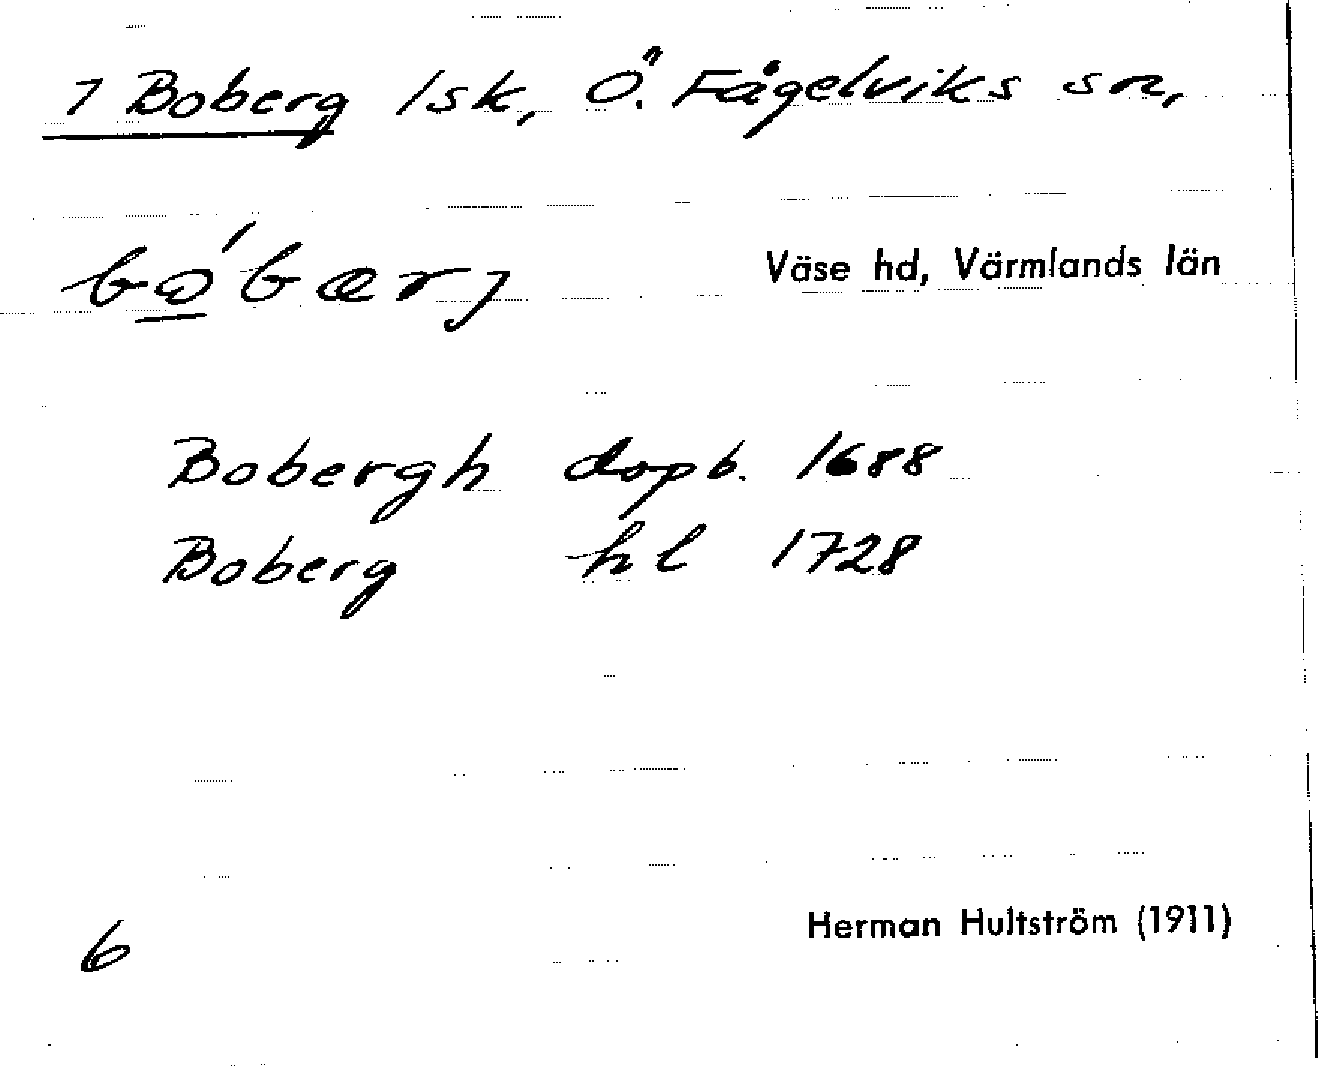 1 Boberg lsk, Ö. Fågelviks sn,
bo̲´bærj
Väse hd, Värmlands län
Bobergh dopb. 1688
Boberg hl 1728
6
Herman Hultström (1911)